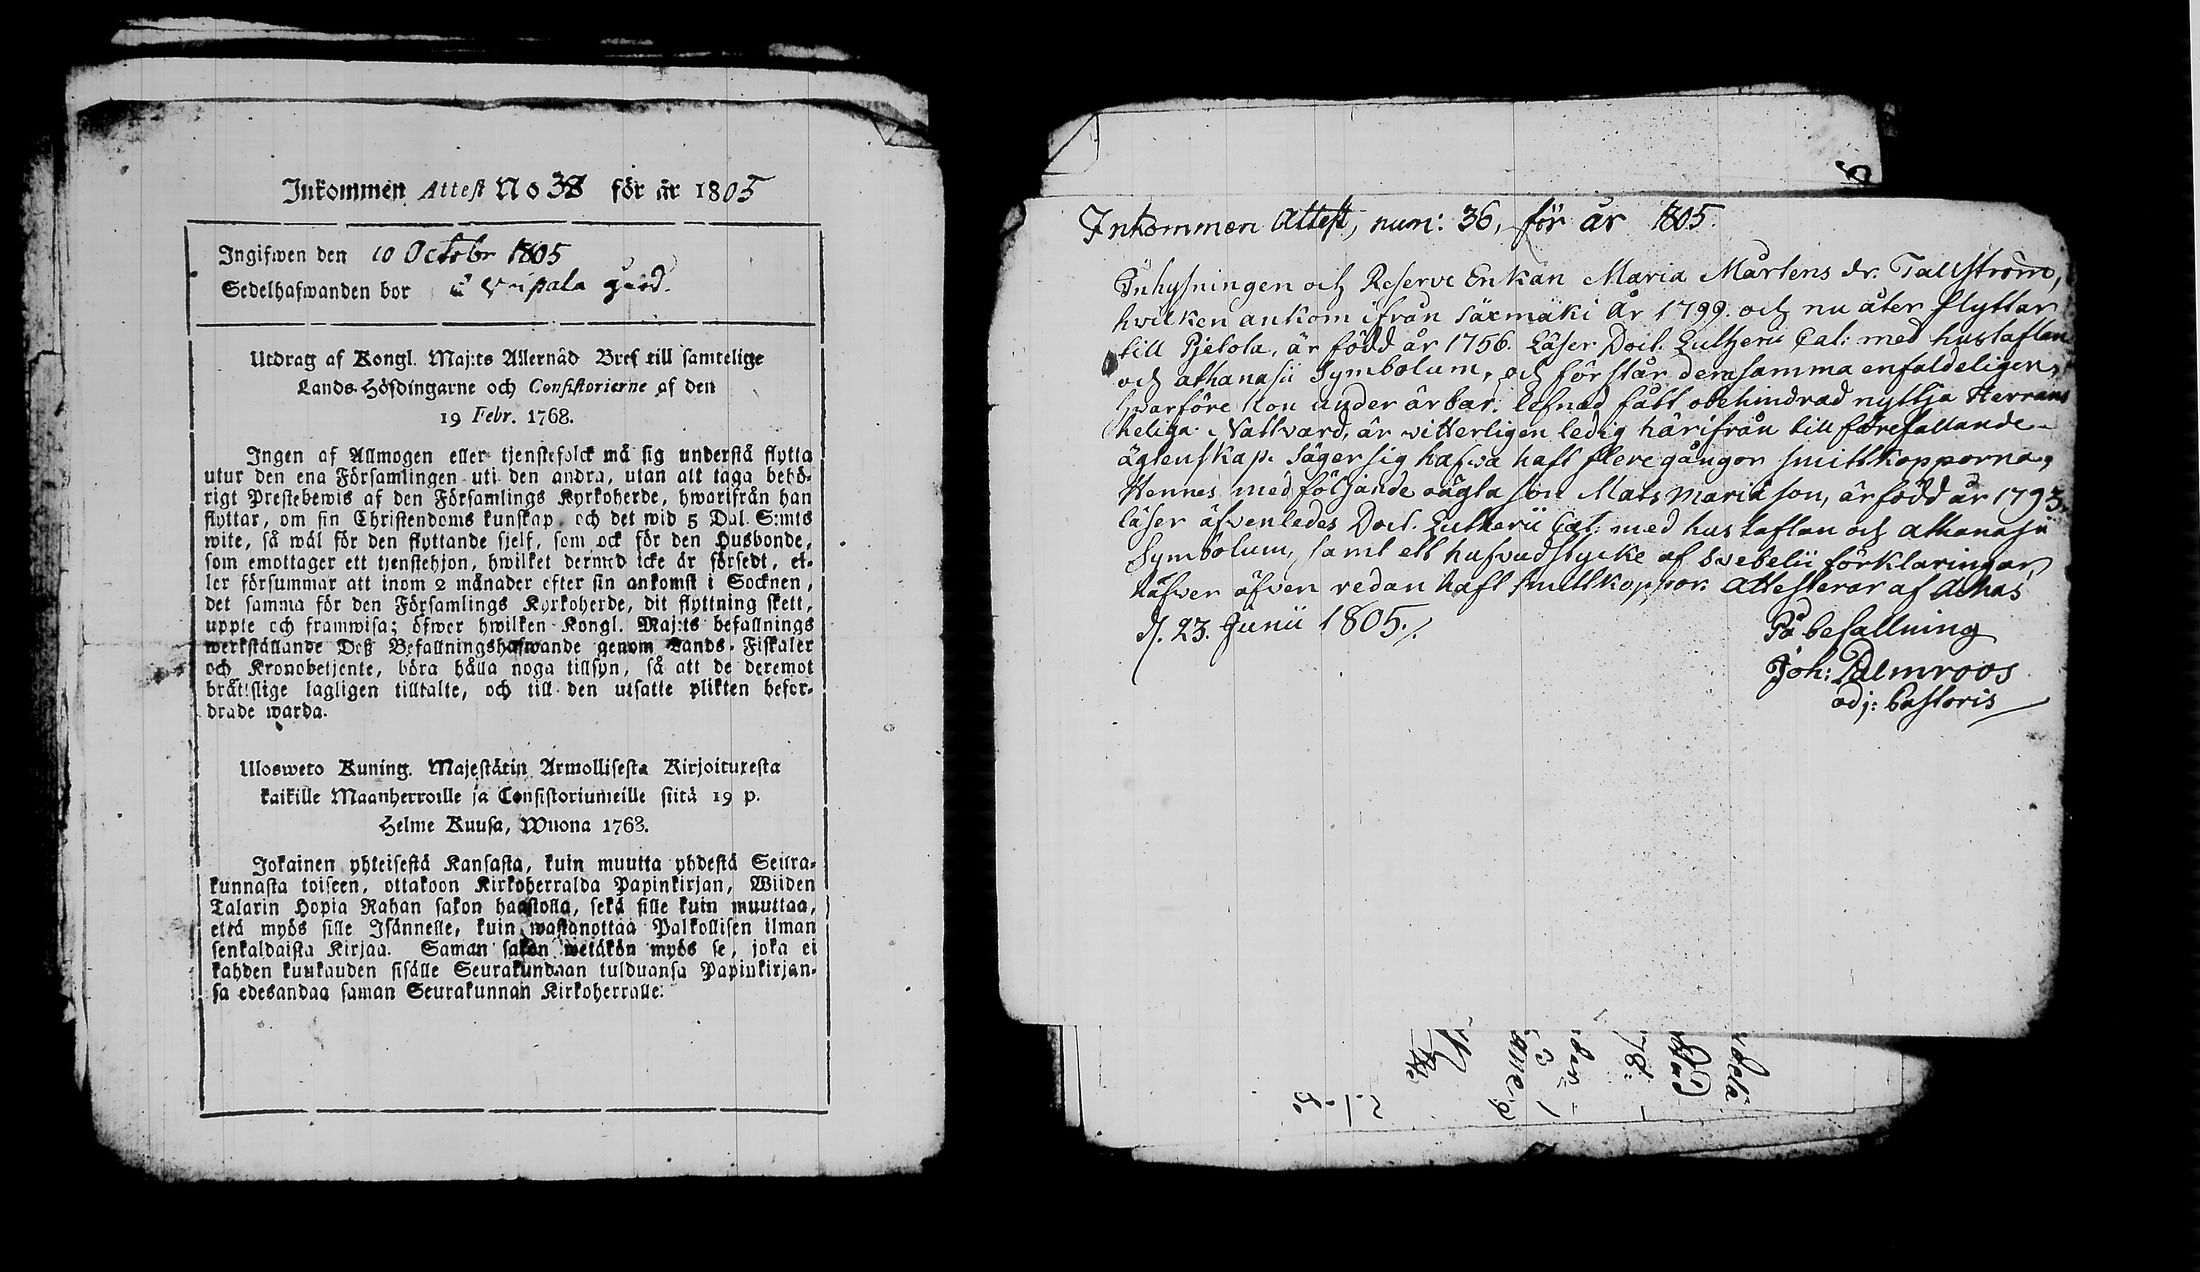 Inkommen Attest No 38 för år 1805
Ingifwen den 10 Octobr 1805
Sedelhafwanden bor å gård.
Utdrag af Kongl. Maj:ts Allernåd Bref till samtelige
Lands-Höfdingarne och Consistorierne af den
19 Febr. 1768.
Ingen af Allmogen eller tjenstefolck må sig understå flytta
utur den ena Församlingen uti den andra, utan att taga behö-
rigt Prestebewis af den Församlings Kyrkoherde, hwarifrån han
flyttar, om sin Christendoms kunskap och det wid 5 Dal. S:mts
wite, så wäl för den flyttande sjelf, som ock för den Husbonde,
som emottager ett tjenstehjon, hwilket dermed icke är försedt, el-
ler försummar att inom 2 månader efter sin ankomst i Socknen,
det samma för den Församlings Kyrkoherde, dit flyttning skett,
uppte och framwisa; öfwer hwilken Kongl. Maj:ts befallnings
werkställande Deß Befallningshafwande genom Lands-Fiskaler
och Kronobetjente, böra hålla noga tillsyn, så att de deremot
bråttslige lagligen tilltalte, och till den utsatte plikten befor-
drade warda.
Ulosweto Kuning. Majestätin Armollisesta Kirjoituxesta
kaikille Maanherroille ja Consistoriumeille siitä 19 p.
Helme Kuusa, Wuona 1768.
Jokainen yhteisestä Kansasta, kuin muutta yhdestä Seura-
kunnasta toiseen, ottakoon Kirkoherralda Papinkirjan, Wiiden
Talarin Hopia Rahan sakon haastolla, sekä sille kuin muuttaa,
että myös sille Isännelle, kuin wastanottaa Palkollisen ilman
senkaldaista Kirjaa. Saman sakon wetäkön myös se, joka ei
kahden kuukauden sisälle Seurakundaan tulduansa Papinkirjan-
sa edesandaa saman Seurakunnan Kirkoherralle.
Inkommen Attest, num: 36, för år 1805.
Inhysningen och Reserve Enkan Maria Mårtens dr. Tallström,
hvilken ankom ifrån Säxmäki år 1799. och nu åter flyttar
till Pjetola, är född år 1756. Läser Doct. Lutheri Cat: med hustaflan
och athanasii Symbolum, och förstår densamma enfaldeligen,
hvarföre hon under ärbar lefnad fått obehindrad nyttja Herrans
heliga Nattvard, är vitterligen ledig härifrån till förefallande
ägtenskap. Säger sig hafva haft flere gångor smittkopporna,
Hennes medföljande oägta son Mats Mariæson, är född år 1793.
läser äfvenledes Doct. Lutherii Cat: med hustaflan och athanasii
Symbolum, samt ett hufvudstycke af Svebelii förklaringar,
häfver äfven redan haft smittkoppor. Attesterar af Achas
d. 23. Junii 1805.
På befallning
Joh: Palmroos
adj: Pastoris